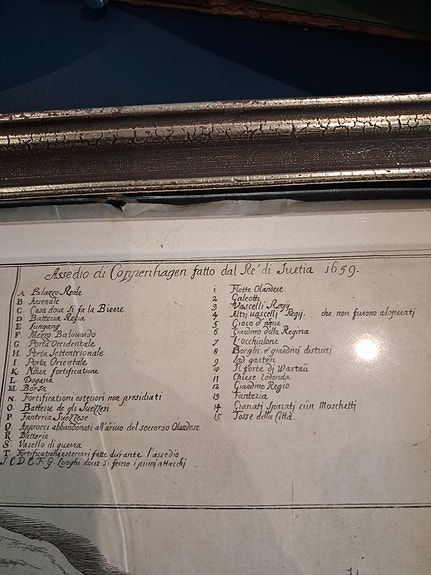 Assedio di Coppenhagen fatto dal Re' di Suetia 1659.
A Palazzo Reale
B. Arsenale
C. Casa doue si fa la Bierre
D Batteria Regia
E Fungang
F. Mezzo Balouardo
G. Porta Occidentale
H. Porta Settentrionale
I. Porta Orientale
K Noua fortificatione
L. Dogana
M. Borsa
N. Fortificationi esteriori non presidiati
O. Batterie de gli Suezzesi
P. Fanteria Suezzese
Q Approcci abbandonati all'ariuo del soccorso Olandese
R. Batterie
S. Vasello di guerra
T. Fortificationi esteriori fatte durante l'assedio
J.C.D.E.F.G. Luoghi doue si fecero i primi attacchi
1 Flotte Olandese
2 Galeotti
3 Vascelli Regij
4 Altri vascelli Regij. che non furono adoperati
5 Gioco d'aque
6 Giardino della Regina
7 L'occhialone
8 Borghi e giardini distrutti
9 Lad garten
10 Il forte di Wartau
11 Chiese rotonda
12 Giardino Regio
13 Fanteria
14 Granati Sparati con Moschetti
15 Fosse della Città.